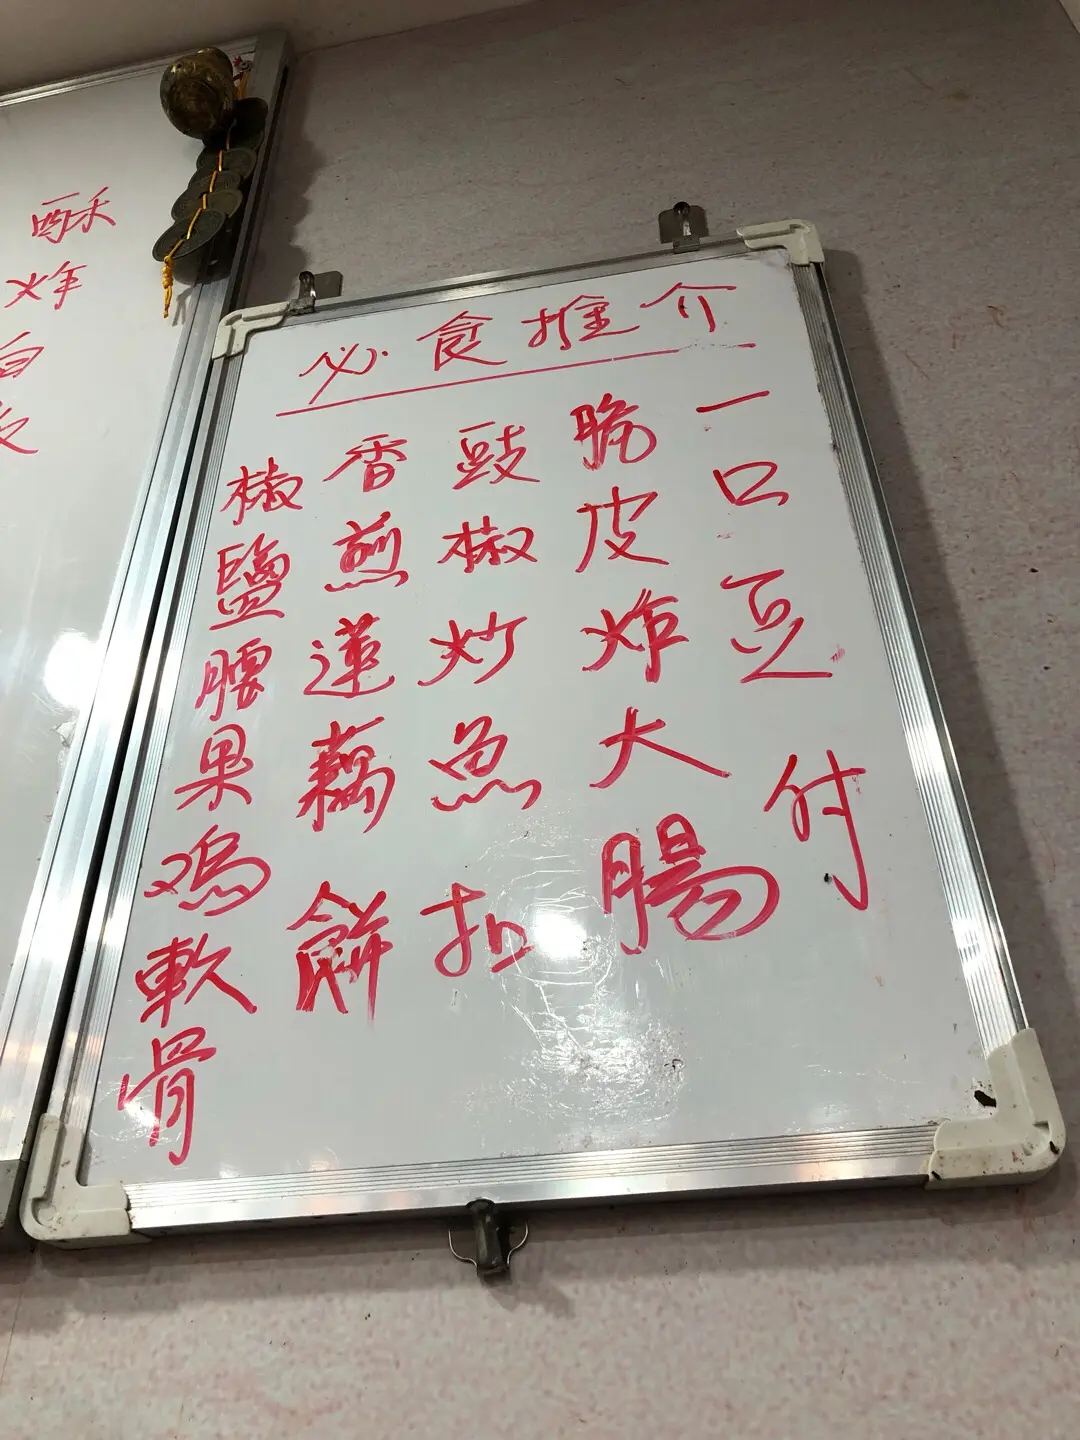 必食推介
一口豆付
脆皮炸大腸
豉椒炒魚扣
香煎蓮藕餅
椒鹽腰果鸡軟骨
酥
炸